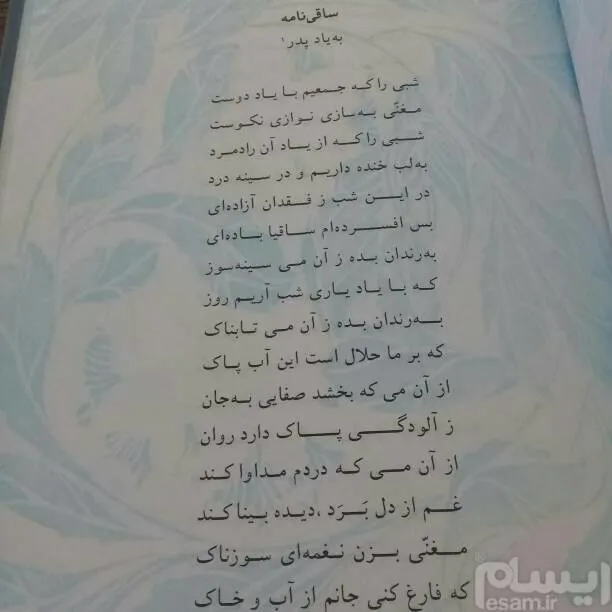 ساقی‌نامه
به‌یاد پدر۱
شبی را که جمعیم با یاد دوست
مغنّی به‌سازی نوازی نکوست
شبی را که از یاد آن رادمرد
به‌لب خنده داریم و در سینه درد
در این شب ز فقدان آزاده‌ای
بس افسرده‌ام ساقیا باده‌ای
به‌رندان بده ز آن می سینه‌سوز
که با یاد یاری شب آریم روز
به‌رندان بده ز آن می تابناک
که بر ما حلال است این آب پاک
از آن می که بخشد صفایی به‌جان
ز آلودگی پاک دارد روان
از آن می که دردم مداوا کند
غم از دل بَرَد ،دیده بینا کند
مغنّی بزن نغمه‌ای سوزناک
که فارغ کنی جانم از آب و خاک
ایسام
esam.ir